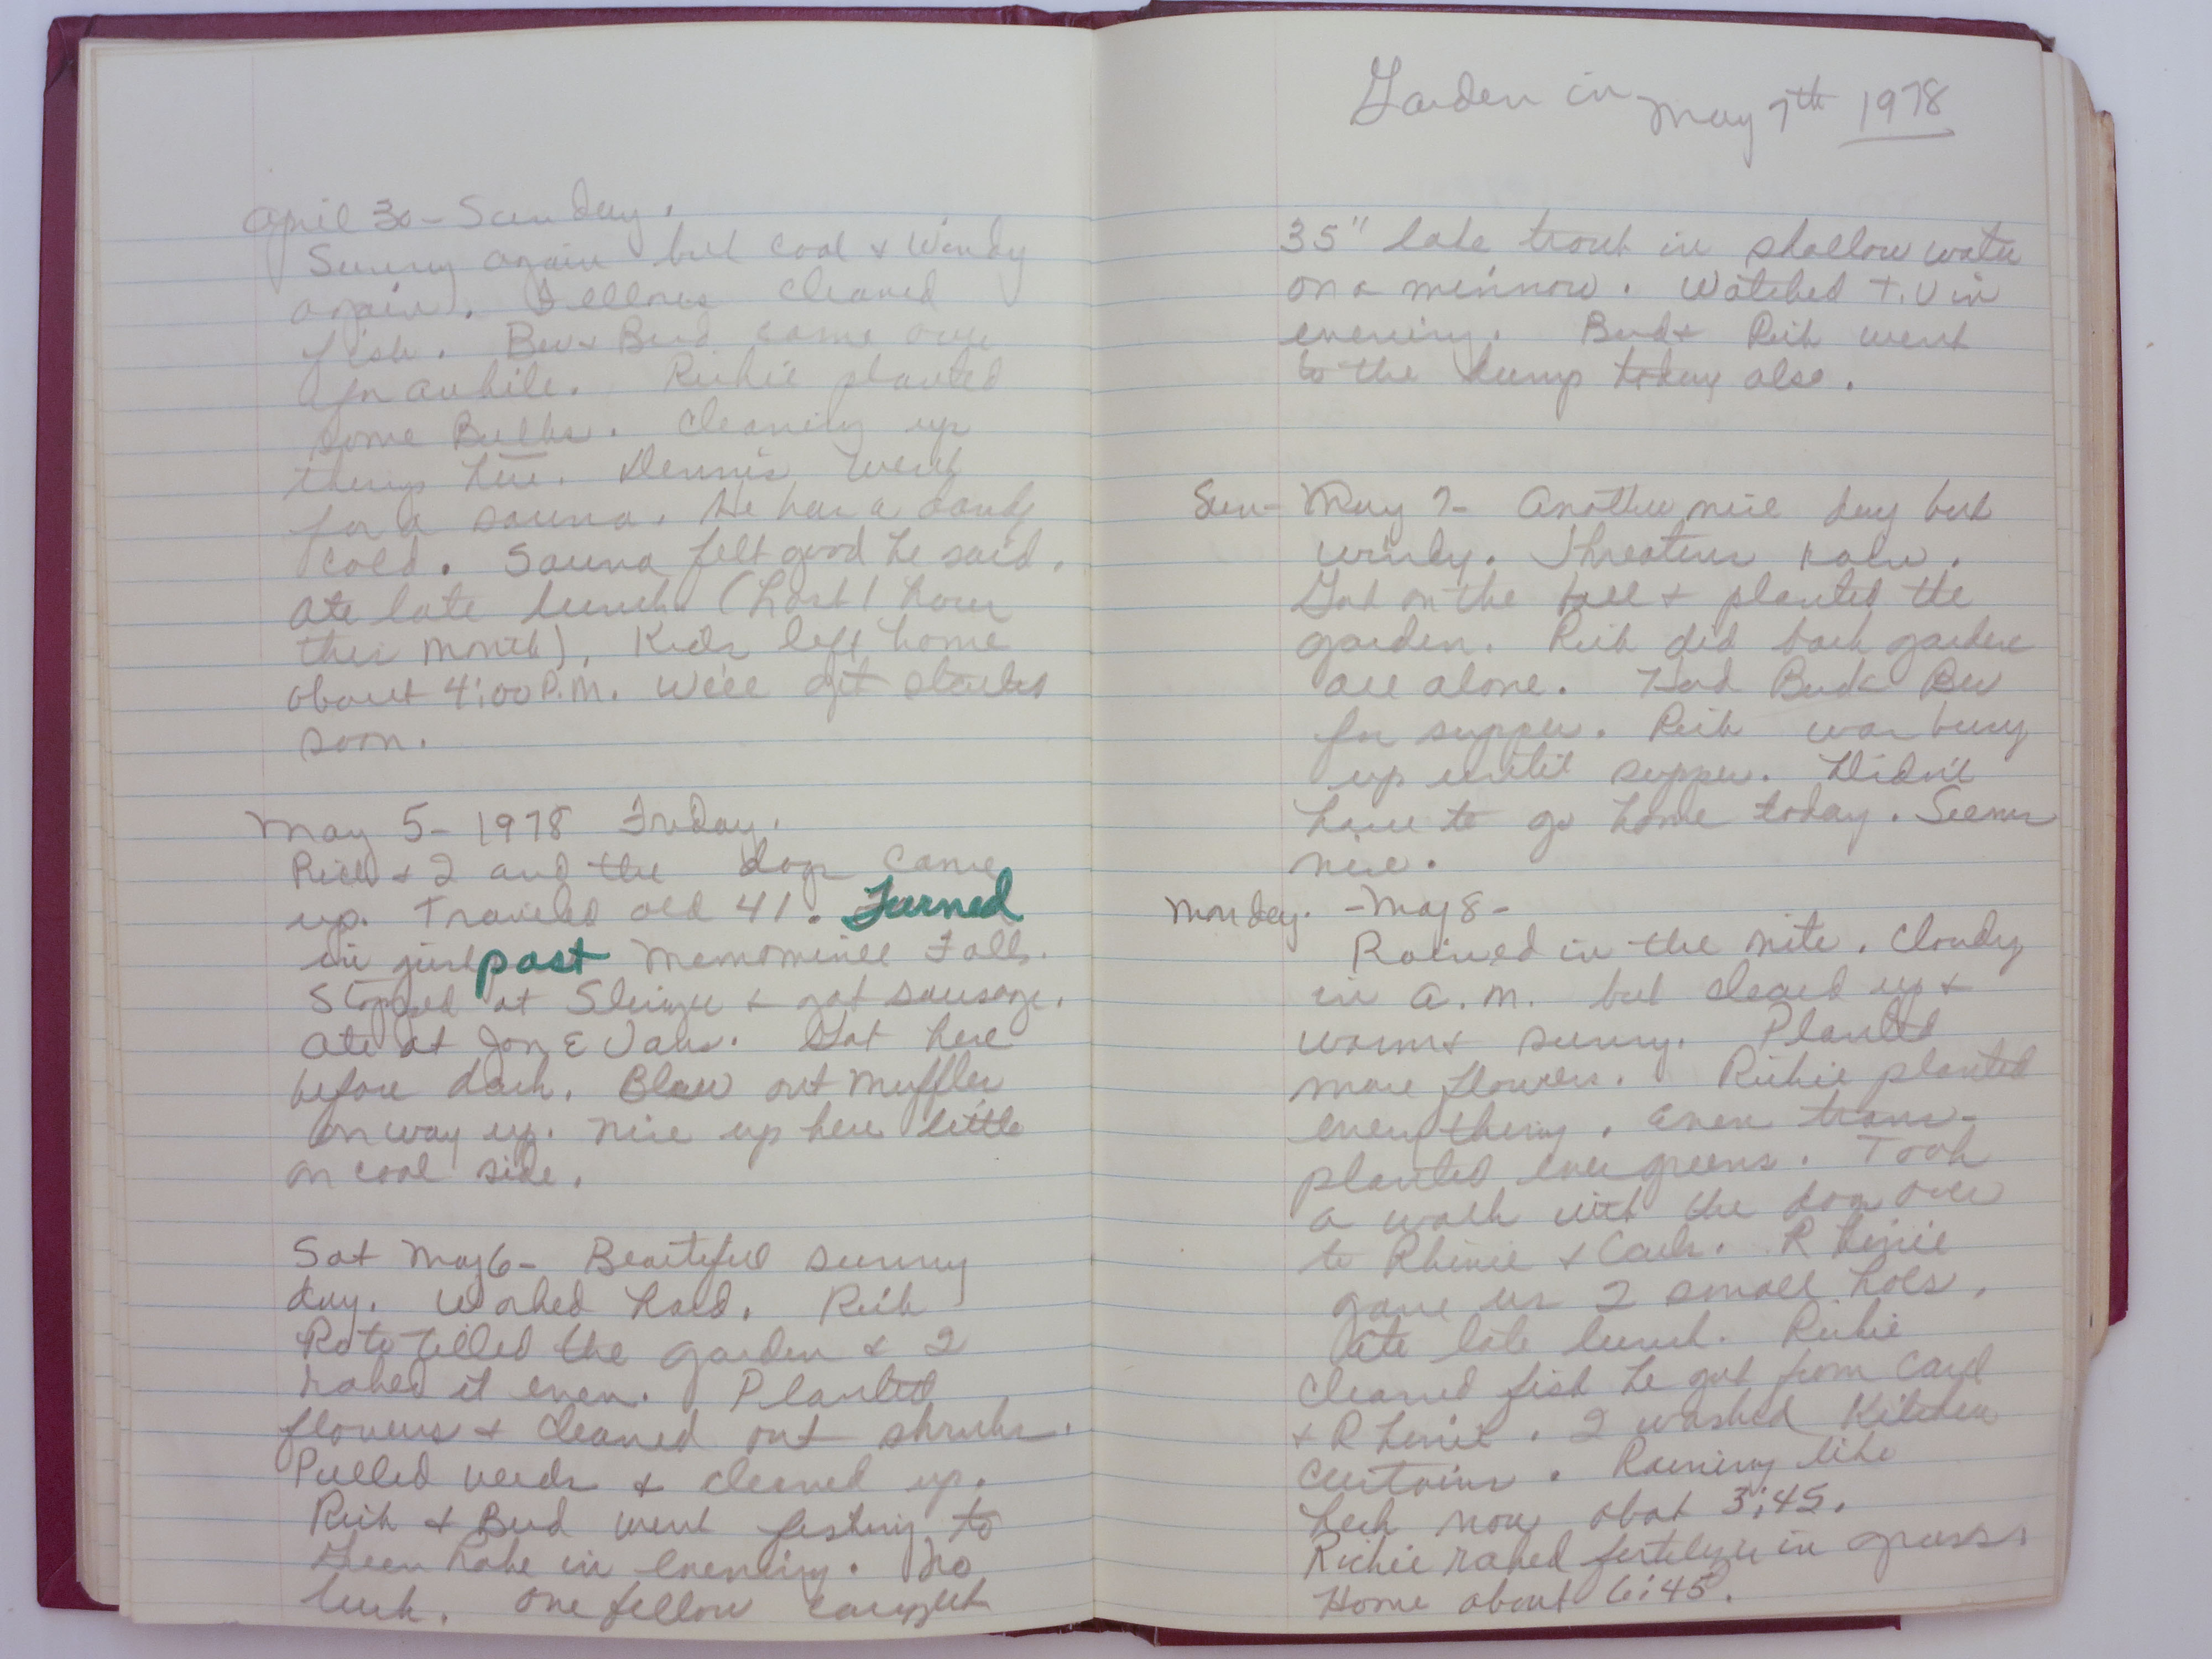 April 30 - Sunday.
Sunny again but cool & Windy
again. Fellows cleaned
fish. Bev & Bud came over
for awhile. Richie planted
some Bulbs. Cleaning up
things here. Dennis went
for a sauna. He has a dandy
cold. Sauna felt good he said.
Ate late lunch (Lost 1 hour
this month), Kids left home
about 4:00 P.M. We'll get started
soon.
May 5 - 1978 Friday.
Rich & I and the dogs came
up. Traveled old 41. Turned
in just past Menominee Falls.
Stopped at Slinger & got sausage.
Ate at Jon E Vans. Got here
before dark. Blew out muffler
on way up. Nice up here little
on cool side.
Sat May 6 - Beautiful sunny
day. Worked hard. Rich
Roto tilled the garden & I
raked it even. Planted
flowers & cleaned out shrubs.
Pulled weeds & cleaned up.
Rich & Bud went fishing to
Green Lake in evening. No
luck. One fellow caught
Garden in May 7th 1978
35" lake trout in shallow water
on a minnow. Watched T.V in
evening. Bud & Rich went
to the dump today also.
Sun - May 7 - Another nice day but
windy. Threatens rain.
Got on the ball & planted the
garden. Rich did back garden
all alone. Had Bud & Bev
for supper. Rich was busy
up until supper. Didn't
have to go home today. Seems
nice.
Monday. - May 8 -
Rained in the nite. Cloudy
in a.m. but cleared up &
warm & sunny. Planted
more flowers. Richie planted
everything. Even trans-
planted evergreens. Took
a walk with the dog over
to Rhinie & Carls. Rhinie
gave us 2 small
Ate late lunch. Richie
cleaned fish he got from Carl
& Rhinie. I washed Kitchen
Curtains. Raining like
heck now abot 3:45.
Richie raked fertilyzer in grass.
Home about 6:45.